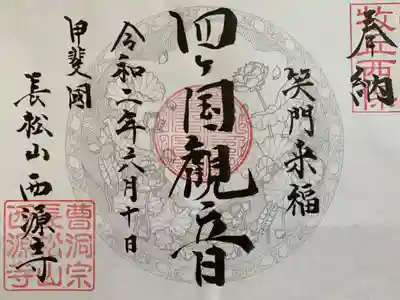 奉納
笑門来福
四ヶ国観音
令和二年六月十日
甲斐國
長松山西源寺
曹洞宗
長松山
西源寺